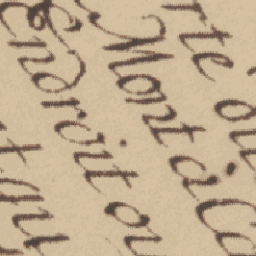 rte où
Mont à Ca
Endroit ou
t qu